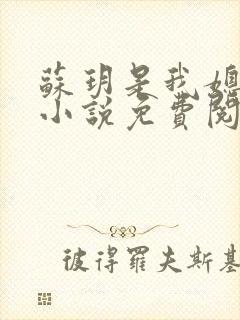 蘇玥是我媳
小說免費閱
彼得羅夫斯基